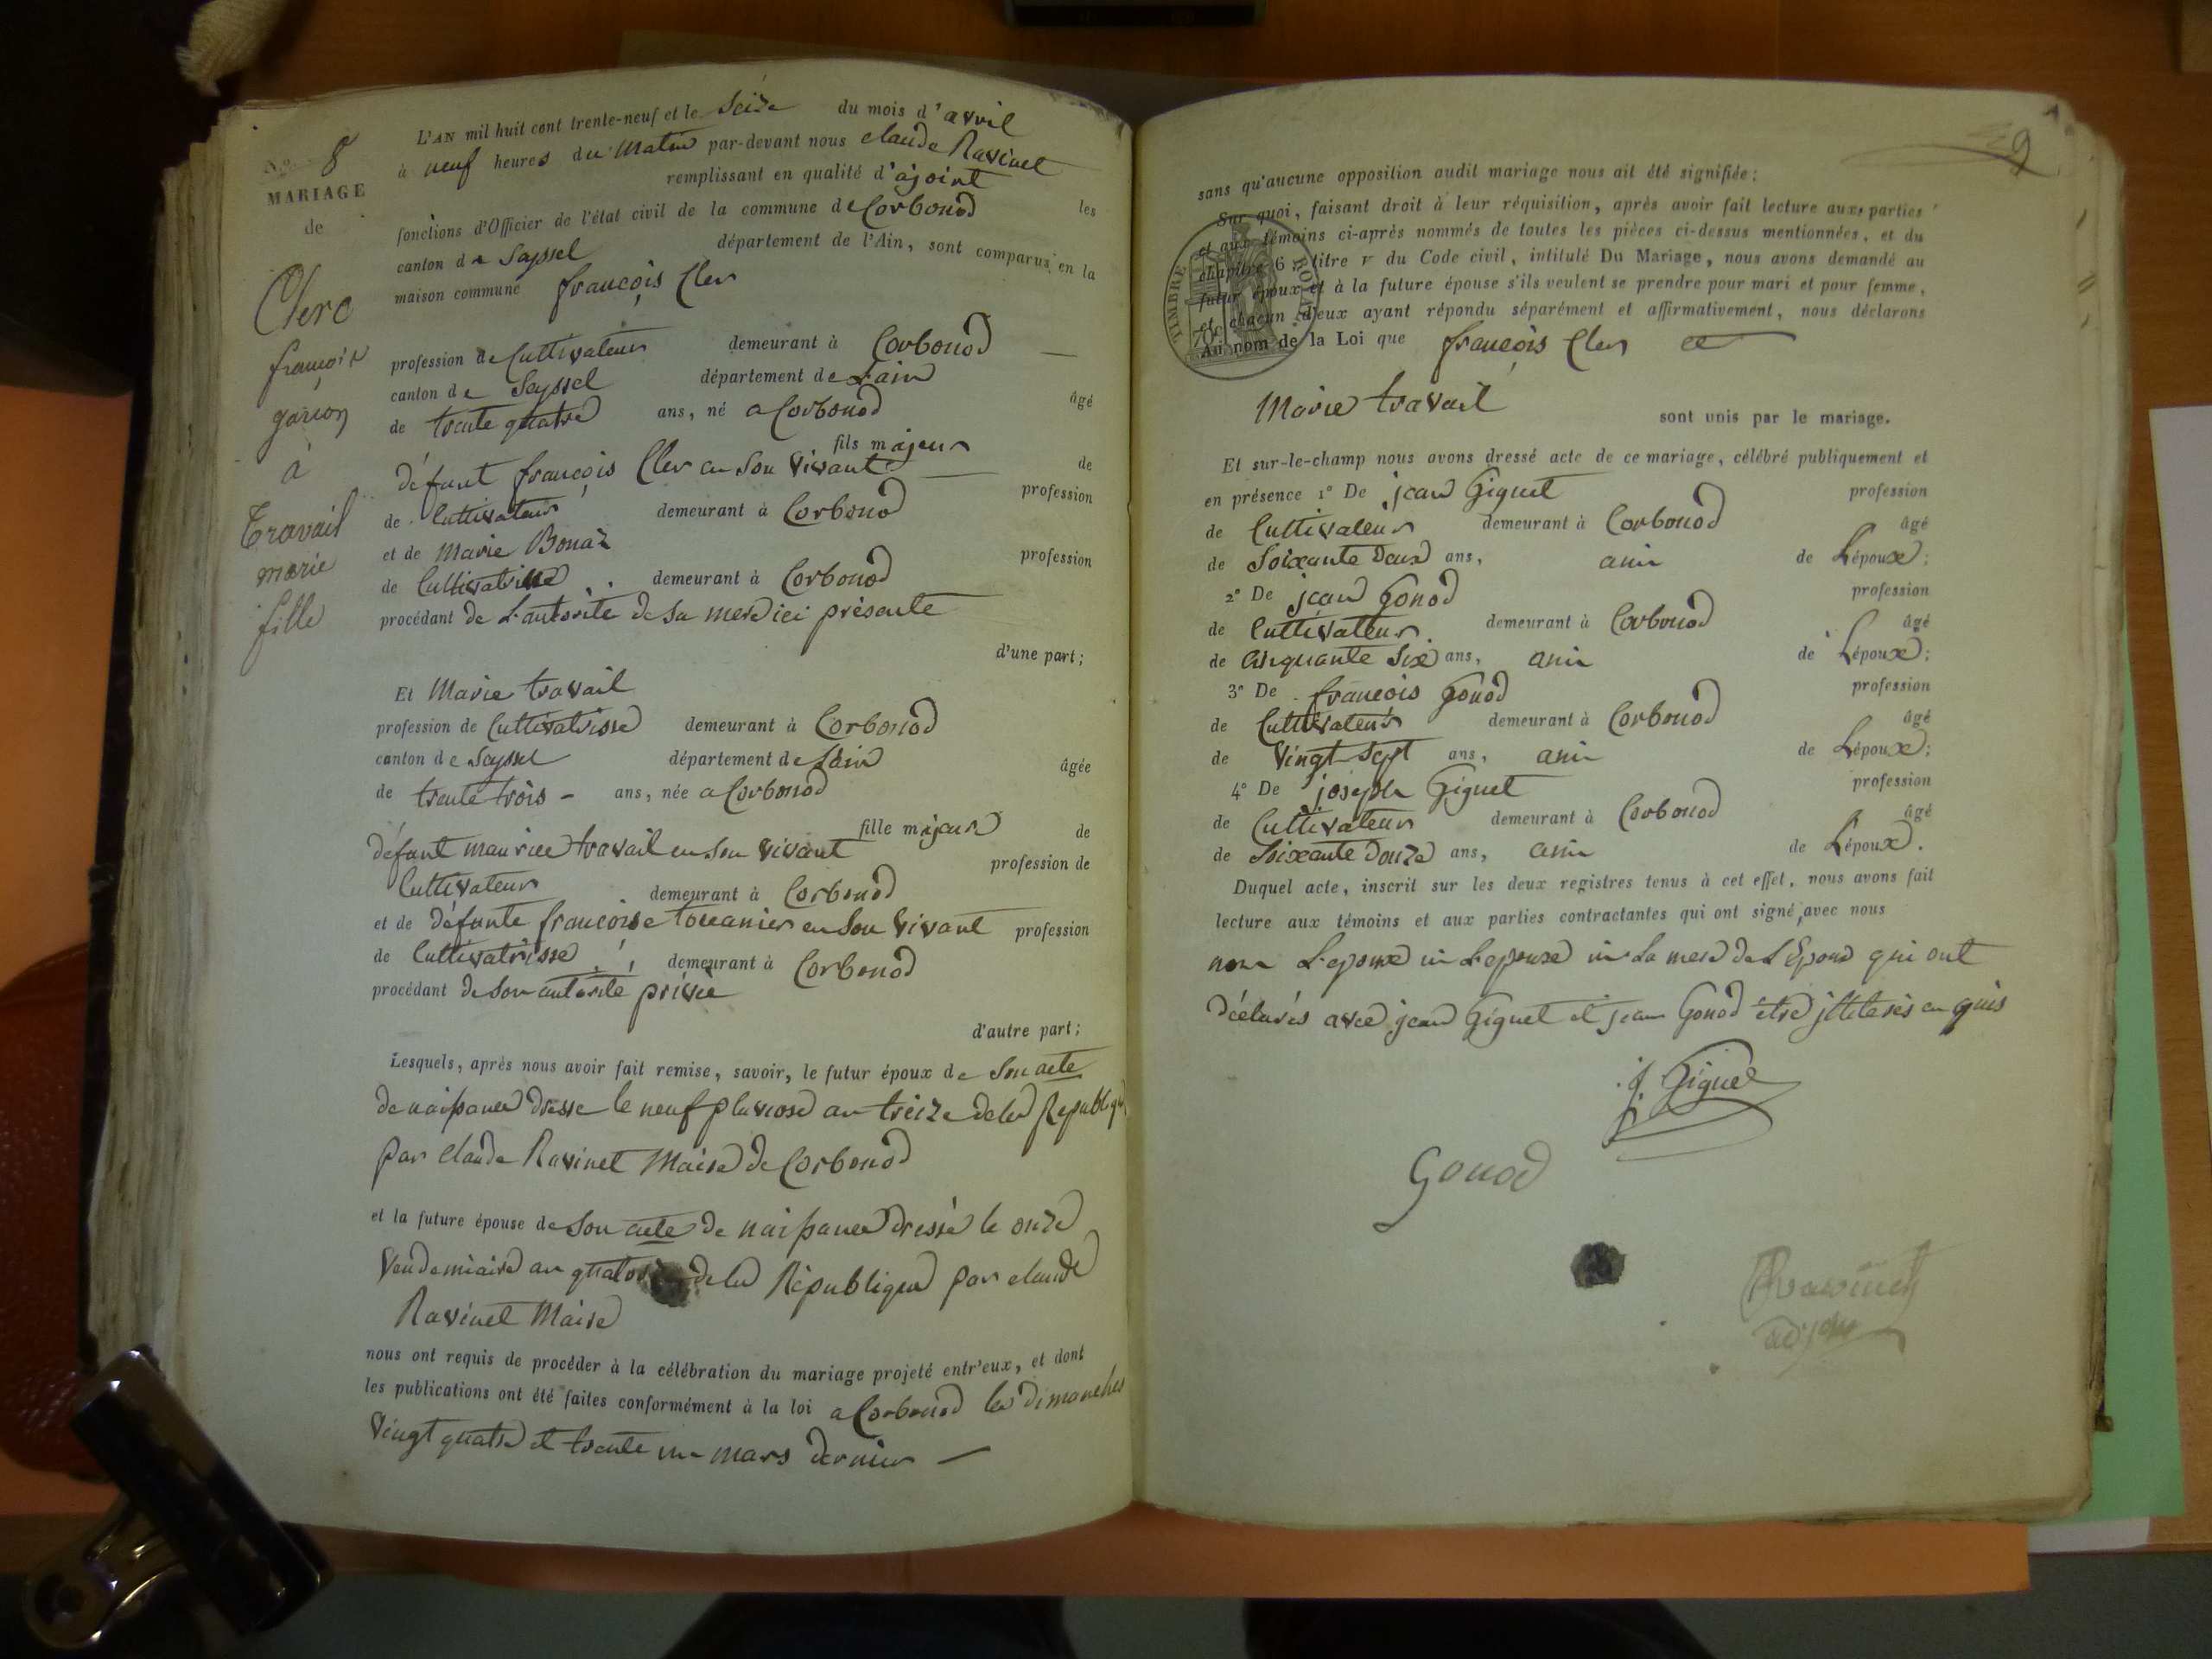 N.o 8
MARIAGE
de
Clerc
françois
garçon
à
Travail
marie
fille
L'AN mil huit cent trente-neuf et le Seize du mois d'avril
à neuf heures du Matin par-devant nous claude Ravinet
remplissant en qualité d'ajoint les
fonctions d'Officier de l'état civil de la commune de Corbonod
canton de Seyssel département de l'Ain, sont comparus en la
maison commune françois Cler
profession de Cultivateur demeurant à Corbonod
canton de Seyssel département de Lain
de trente quatre ans, né a Corbonod âgé
fils majeur de
défunt françois Cler en Son Vivant profession
de Cultivateur demeurant à Corbonod
et de Marie Bonaz profession
de Cultivatrisse demeurant à Corbonod
procédant de L'autorite de Sa mere ici présente
d'une part;
Et Marie travail
profession de Cultivatrisse demeurant à Corbonod
canton de Seyssel département de Lain âgée
de trente trois - ans, née a Corbonod
fille majeure de
défunt maurice travail en Son Vivant profession de
Cultivateur demeurant à Corbonod
et de défunte francoise en Son Vivant profession
de Cultivatrisse demeurant à Corbonod
procédant de Son autorité privée
d'autre part;
Lesquels, après nous avoir fait remise, savoir, le futur époux de Son acte
de naissance dressé le neuf pluviose an treize de la Republique
par claude Ravinet Maire de Corbonod
et la future épouse de Son acte de naissance dressé le onze
Vendemiaire an de la République par claude
Ravinet Maire
nous ont requis de procéder à la célébration du mariage projeté entr'eux, et dont
les publications ont été faites conformément à la loi a Corbonod les dimanches
Vingt quatre et trente un mars dernier —
9
sans qu'aucune opposition audit mariage nous ait été signifiée;
Sur quoi, faisant droit à leur réquisition, après avoir fait lecture aux parties
et aux témoins ci-après nommés de toutes les pièces ci-dessus mentionnées, et du
chapitre 6, titre v du Code civil, intitulé Du Mariage, nous avons demandé au
futur époux et à la future épouse s'ils veulent se prendre pour mari et pour femme,
et chacun d'eux ayant répondu séparément et affirmativement, nous déclarons
Au nom de la Loi que françois Cler et
TIMBRE ROYAL
Marie travail
sont unis par le mariage.
Et sur-le-champ nous avons dressé acte de ce mariage, célébré publiquement et
en présence 1º De jean Giguet profession
de Cultivateur demeurant à Corbonod âgé
de Soixante Deux ans, ami de Lépoux;
2º De jean Gonod profession
de Cultivateur demeurant à Corbonod âgé
de Cinquante Six ans, ami de Lépoux;
3º De francois Gonod profession
de Cultivateur demeurant à Corbonod âgé
de Vingt Sept ans, ami de Lépoux;
4º De joseph Giguet profession
de Cultivateur demeurant à Corbonod âgé
de Soixante Douze ans, ami de Lépoux.
Duquel acte, inscrit sur les deux registres tenus à cet effet, nous avons fait
lecture aux témoins et aux parties contractantes qui ont signé avec nous
non L'epoux ni L'epouse ni La mere de L'Epoux qui ont
déclarés avec jean Giguet et jean Gonod être en quis
j. Giguet
Gonod
Ravinet
adj